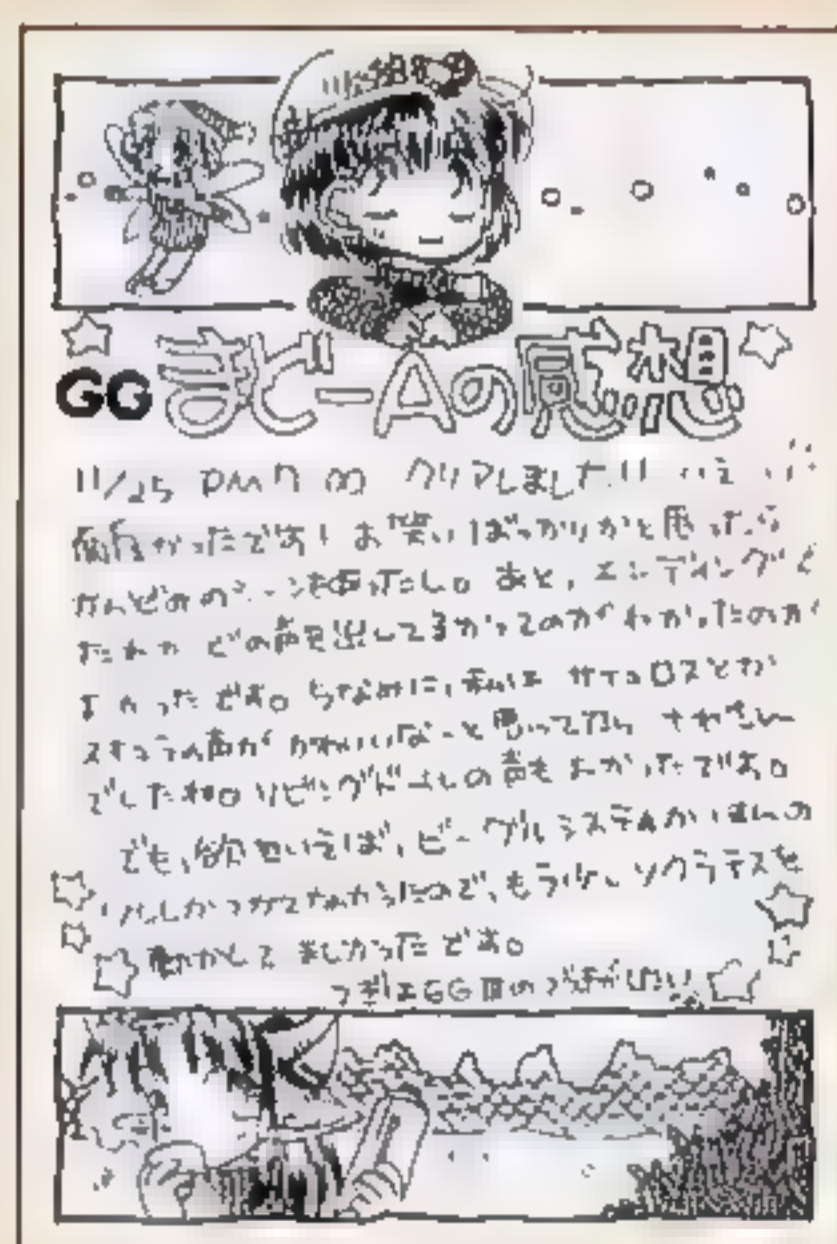 GG まどーAの感想
11/25 PM7 の クリアしました!! いえ
面白かったでぁ! お笑いばっかりかと思ったら
かんどぉのシーンもあったし。あと、エンディングで
だれが どの声を出してるかってのがわかったのが
よかったでぁ。ちなみに、私は サイコロスとか
スキュラの声が かわいいなーと思ってたら
でしたね。リビングドールの声も よかったでぁ。
でも、欲をいえば、ビーグルシステムが いまの
しかつかえなかったので、もう少し ソクラテスを
動かして ほしかったでぁ。
つぎはGGⅢの